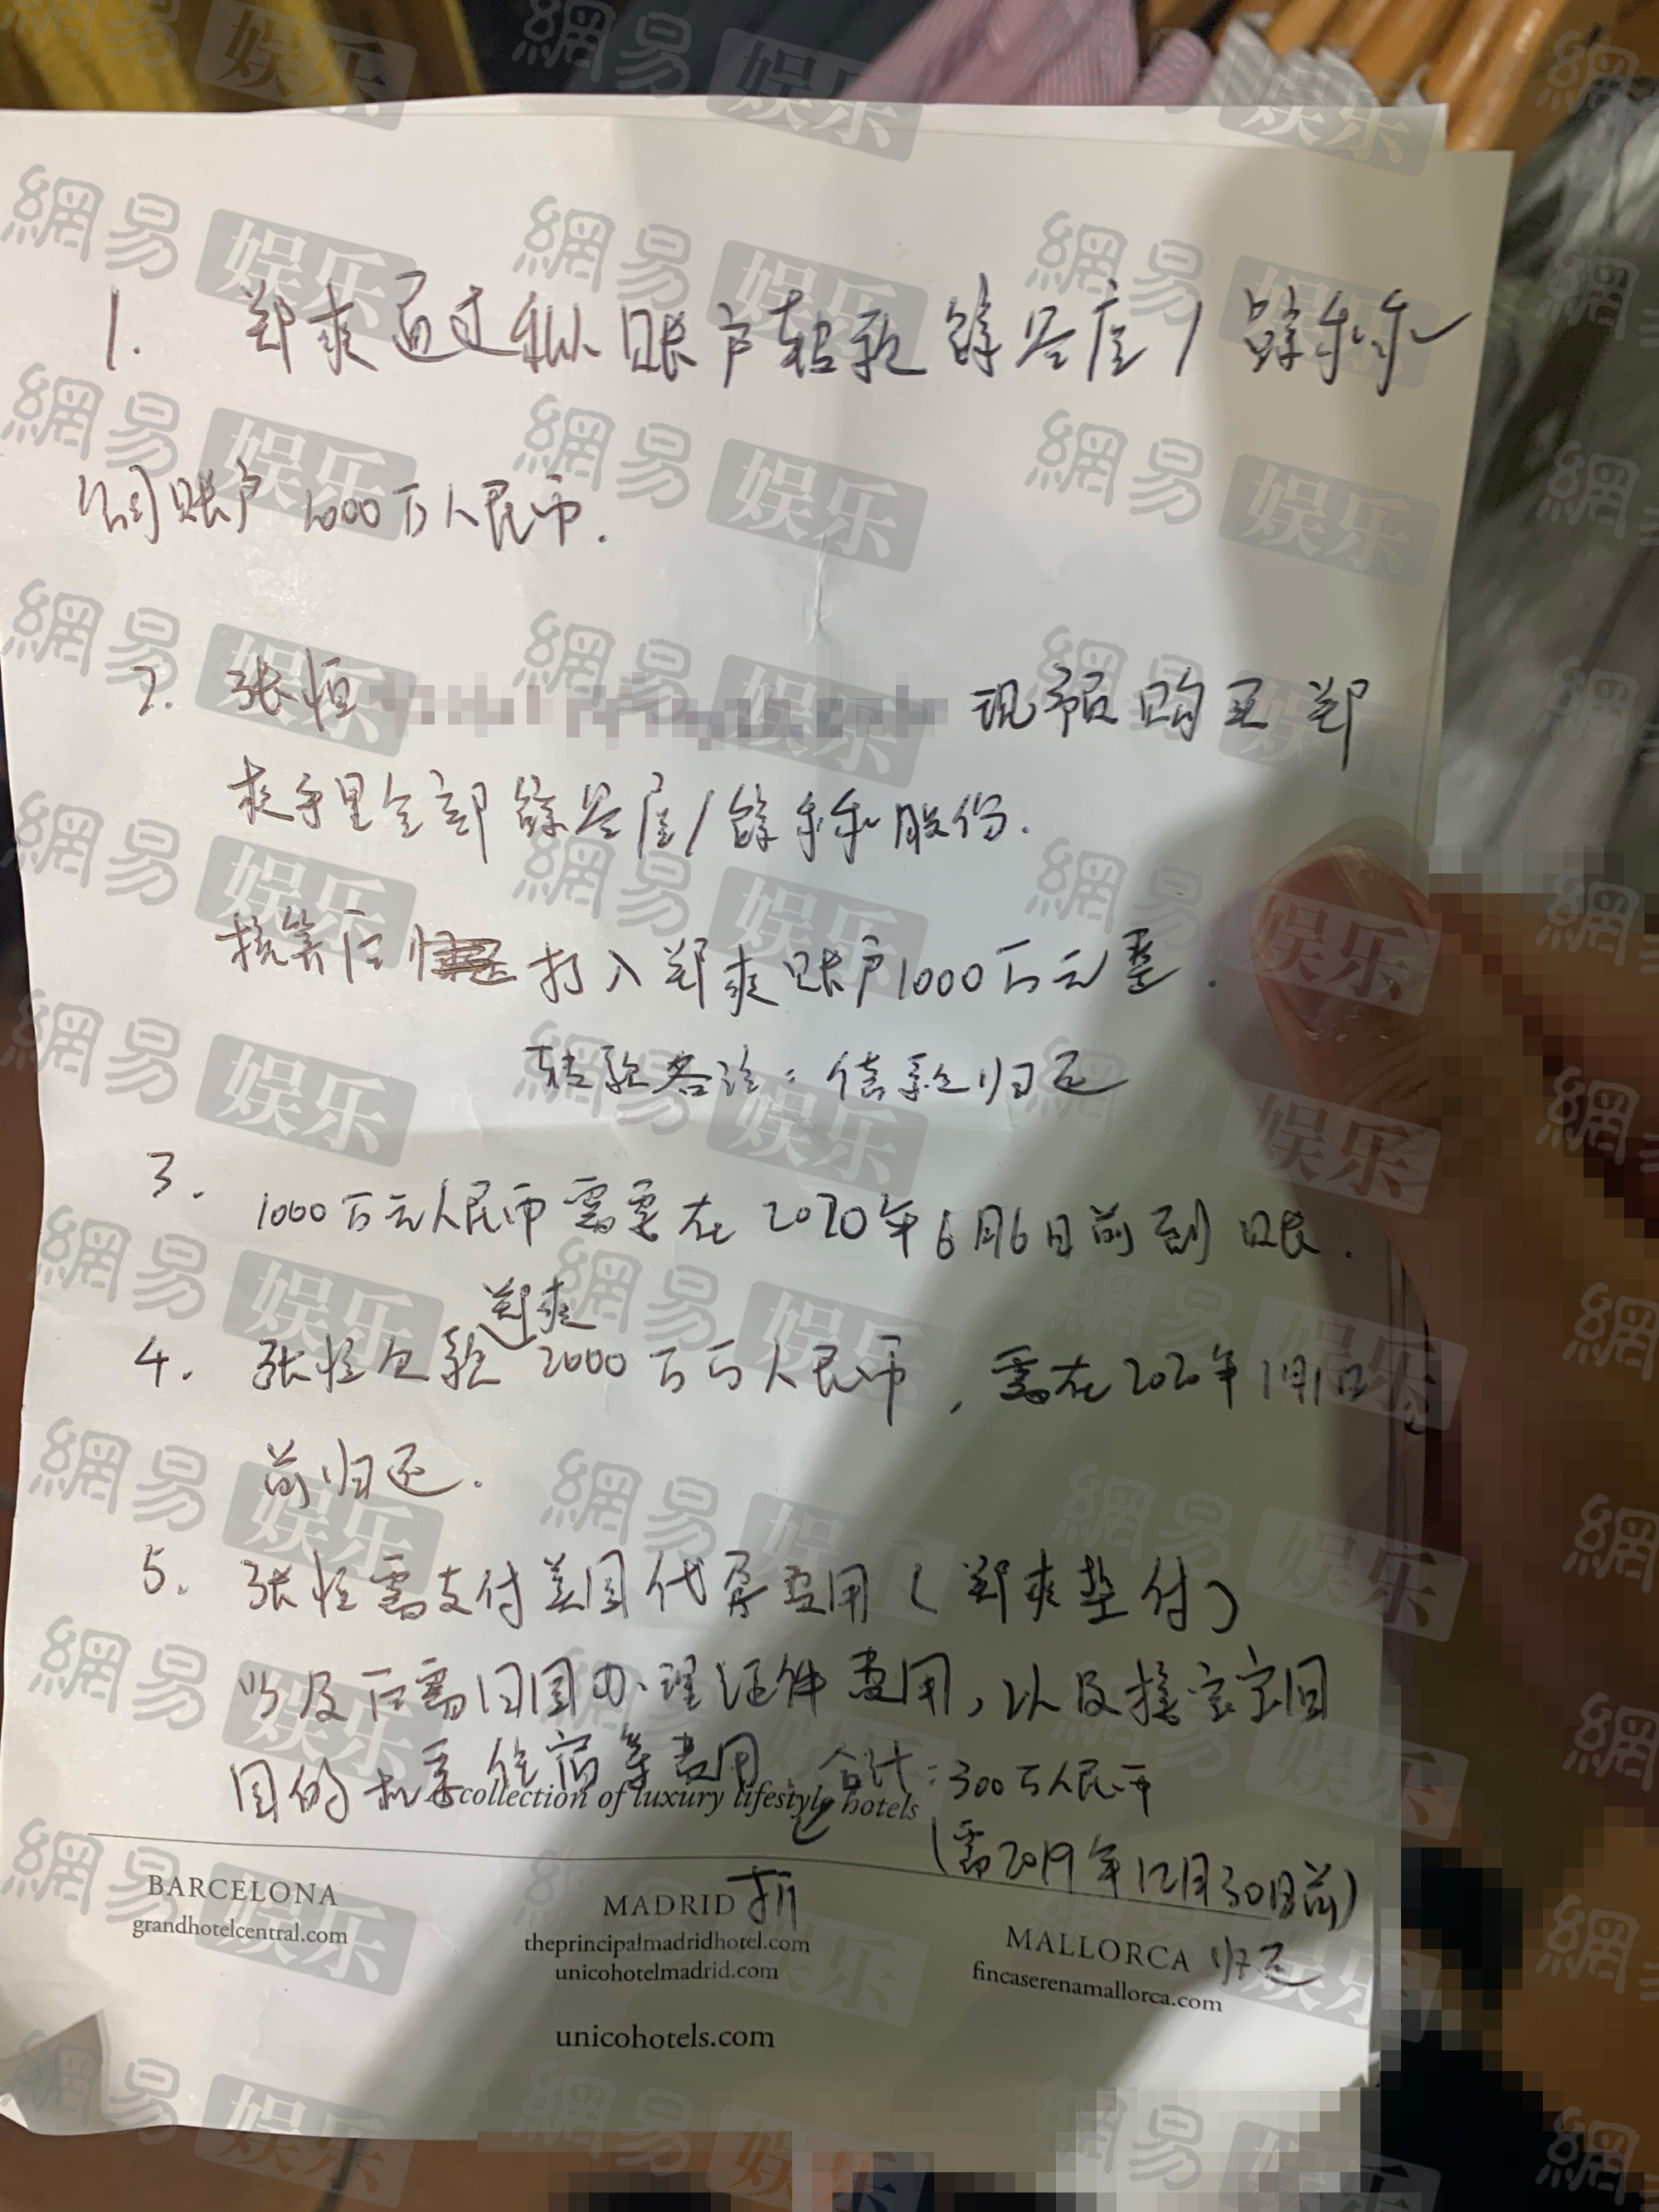 1. 郑爽通过私人账户转款馀谷仓/馀乐乐
公司账户1000万人民币.
2. 张恒 现预购买郑
爽手里全部馀谷仓/馀乐乐股份.
换算后 打入郑爽账户1000万元整.
转款备注:借款归还
3. 1000万元人民币需要在2020年6月6日前到账.
郑爽
4. 张恒欠款2000万万人民币,需在2020年1月1日
前归还.
5. 张恒需支付美国代孕费用(郑爽垫付)
以及后需回国办理证件费用,以及接宝宝回
国的机票住宿等费用 合计:300万人民币
A collection of luxury lifestyle hotels
(需2019年12月30日前)
归还
BARCELONA
grandhotelcentral.com
MADRID
theprincipalmadridhotel.com
unicohotelmadrid.com
MALLORCA
fincaserenamallorca.com
unicohotels.com
網易娱乐